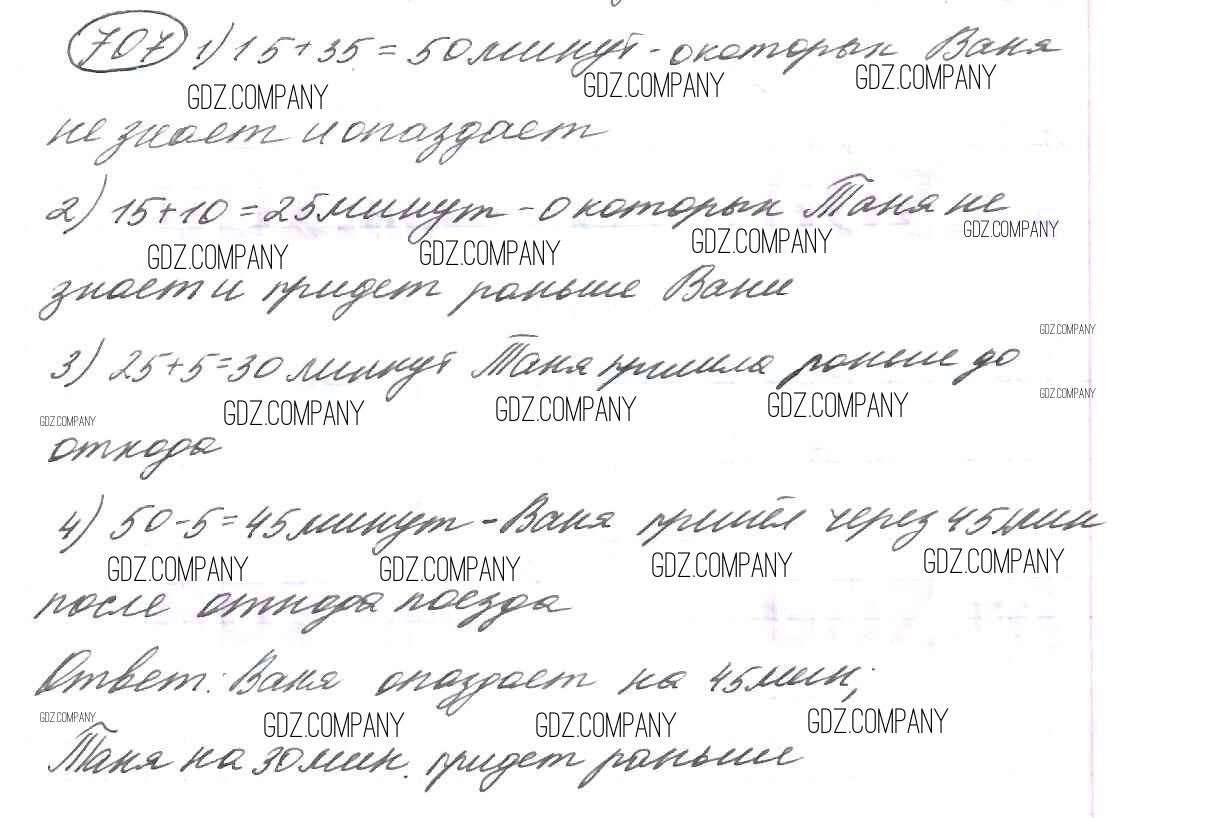 707 1) 15 + 35 = 50 минут - о которых Ваня
GDZ.COMPANY GDZ.COMPANY GDZ.COMPANY
не знает и опоздает
2) 15 + 10 = 25 минут - о которых Таня не
GDZ.COMPANY GDZ.COMPANY GDZ.COMPANY GDZ.COMPANY
знает и придет раньше Вани
GDZ.COMPANY
3) 25 + 5 = 30 минут Таня пришла раньше до
GDZ.COMPANY GDZ.COMPANY GDZ.COMPANY GDZ.COMPANY GDZ.COMPANY
отхода
4) 50 - 5 = 45 минут - Ваня пришёл через 45 мин
GDZ.COMPANY GDZ.COMPANY GDZ.COMPANY GDZ.COMPANY
после отхода поезда
Ответ: Ваня опоздает на 45 мин;
GDZ.COMPANY GDZ.COMPANY GDZ.COMPANY GDZ.COMPANY
Таня на 30 мин. придет раньше